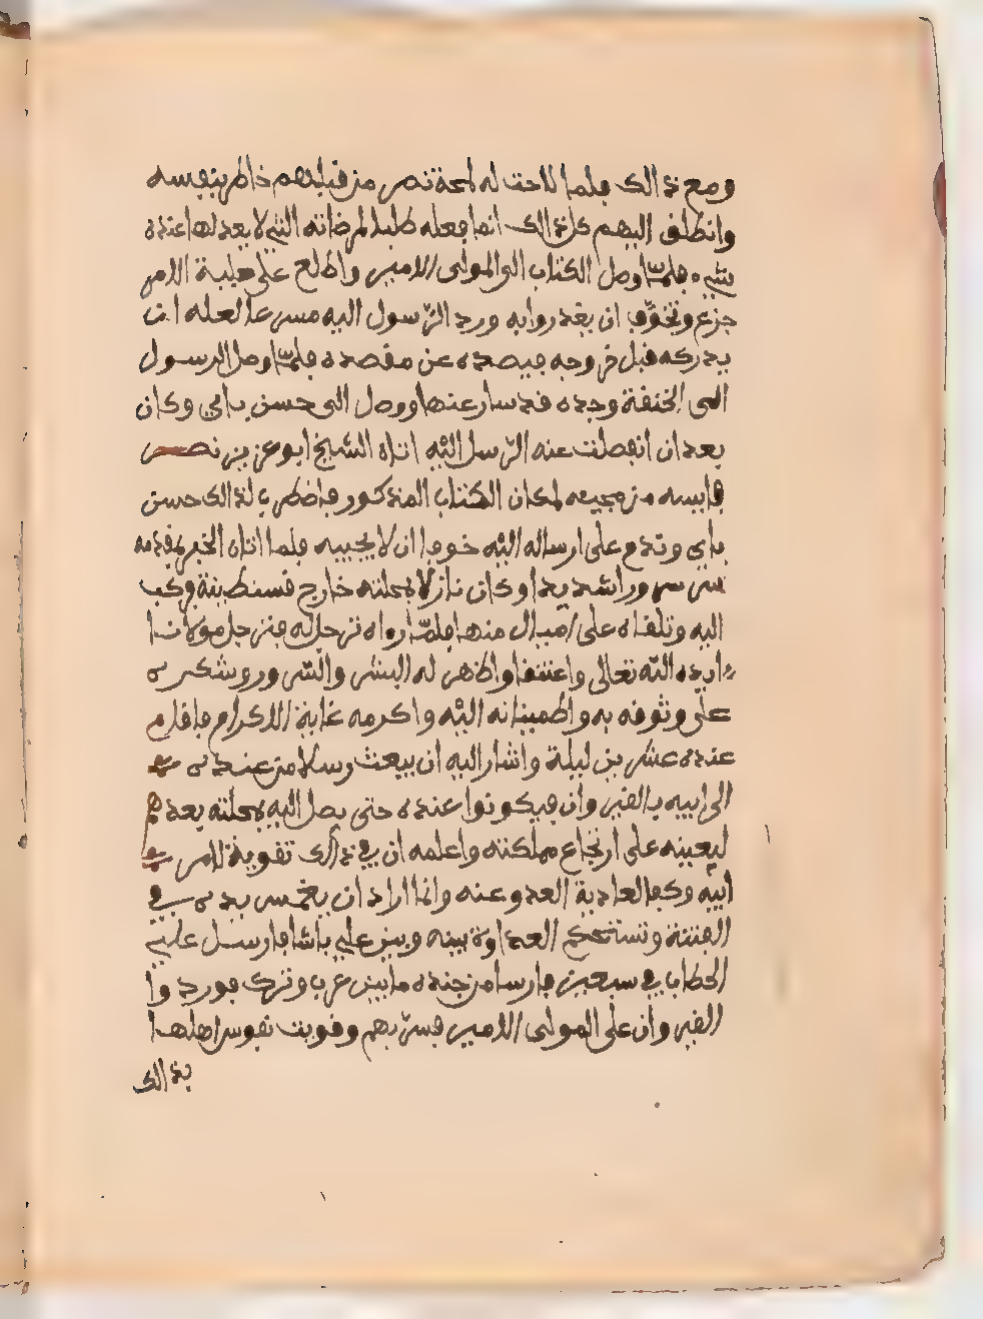 ومع ذالك فلما لاحت له لمحة نصر من قبلهم خاطر بنفسه
وانطلق اليهم كل ذالك انما فعله طلبا لمرضاته التي لا يعدلها عنده
شيء فلما وصل الكتاب الى المولى الامير واطلع على جلية الامر
جزع وتخوّف ان يغدروا به ورد الرّسول اليه مسرعا لعله ان
يدركه قبل خروجه فيصده عن مقصده فلما وصل الرسول
الى الخنقة وجده قد سار عنها ووصل الى حسن باي وكان
بعد ان انفصلت عنه الرّسل اليه اتاه الشيخ ابو عزيز بن نصر
فايسه من مجيئه لمكان الكتاب المذكور فاضطرب لذالك حسن
باي وندم على ارساله اليه خوفا ان لا يجيبه فلما اتاه الخبر بمقدمه
سر سرورا شديدا وكان نازلا بمحلته خارج قسنطينة فركب
اليه وتلقاه على اميال منها فلمّا رواه ترجل له فنزجل مولانا
ايده الله تعالى واعتنقا واظهر له البشر والسّرور وشكره
على وثوقه به واطمينانه اليه واكرمه غاية الاكرام فاقام
عنده عشرين ليلة واشار اليه ان يبعث رسلا من عنده
الى ابيه بالقيروان فيكونوا عنده حتى يصل اليه بمحلته بعدهم
ليعينه على ارتجاع مملكته واعلمه ان في ذالك تقوية لامر
ابيه وكفا لعادية العدو عنه وانما اراد ان يغمس يده في
الفتنة وتستحكم العداوة بينه وبين علي باشا فارسل علي
الحطاب في سبعين فارسا من جنده ما بين عرب وترك فوردوا
القيروان على المولى الامير فسرّ بهم وقويت نفوس اهلها
بذالك